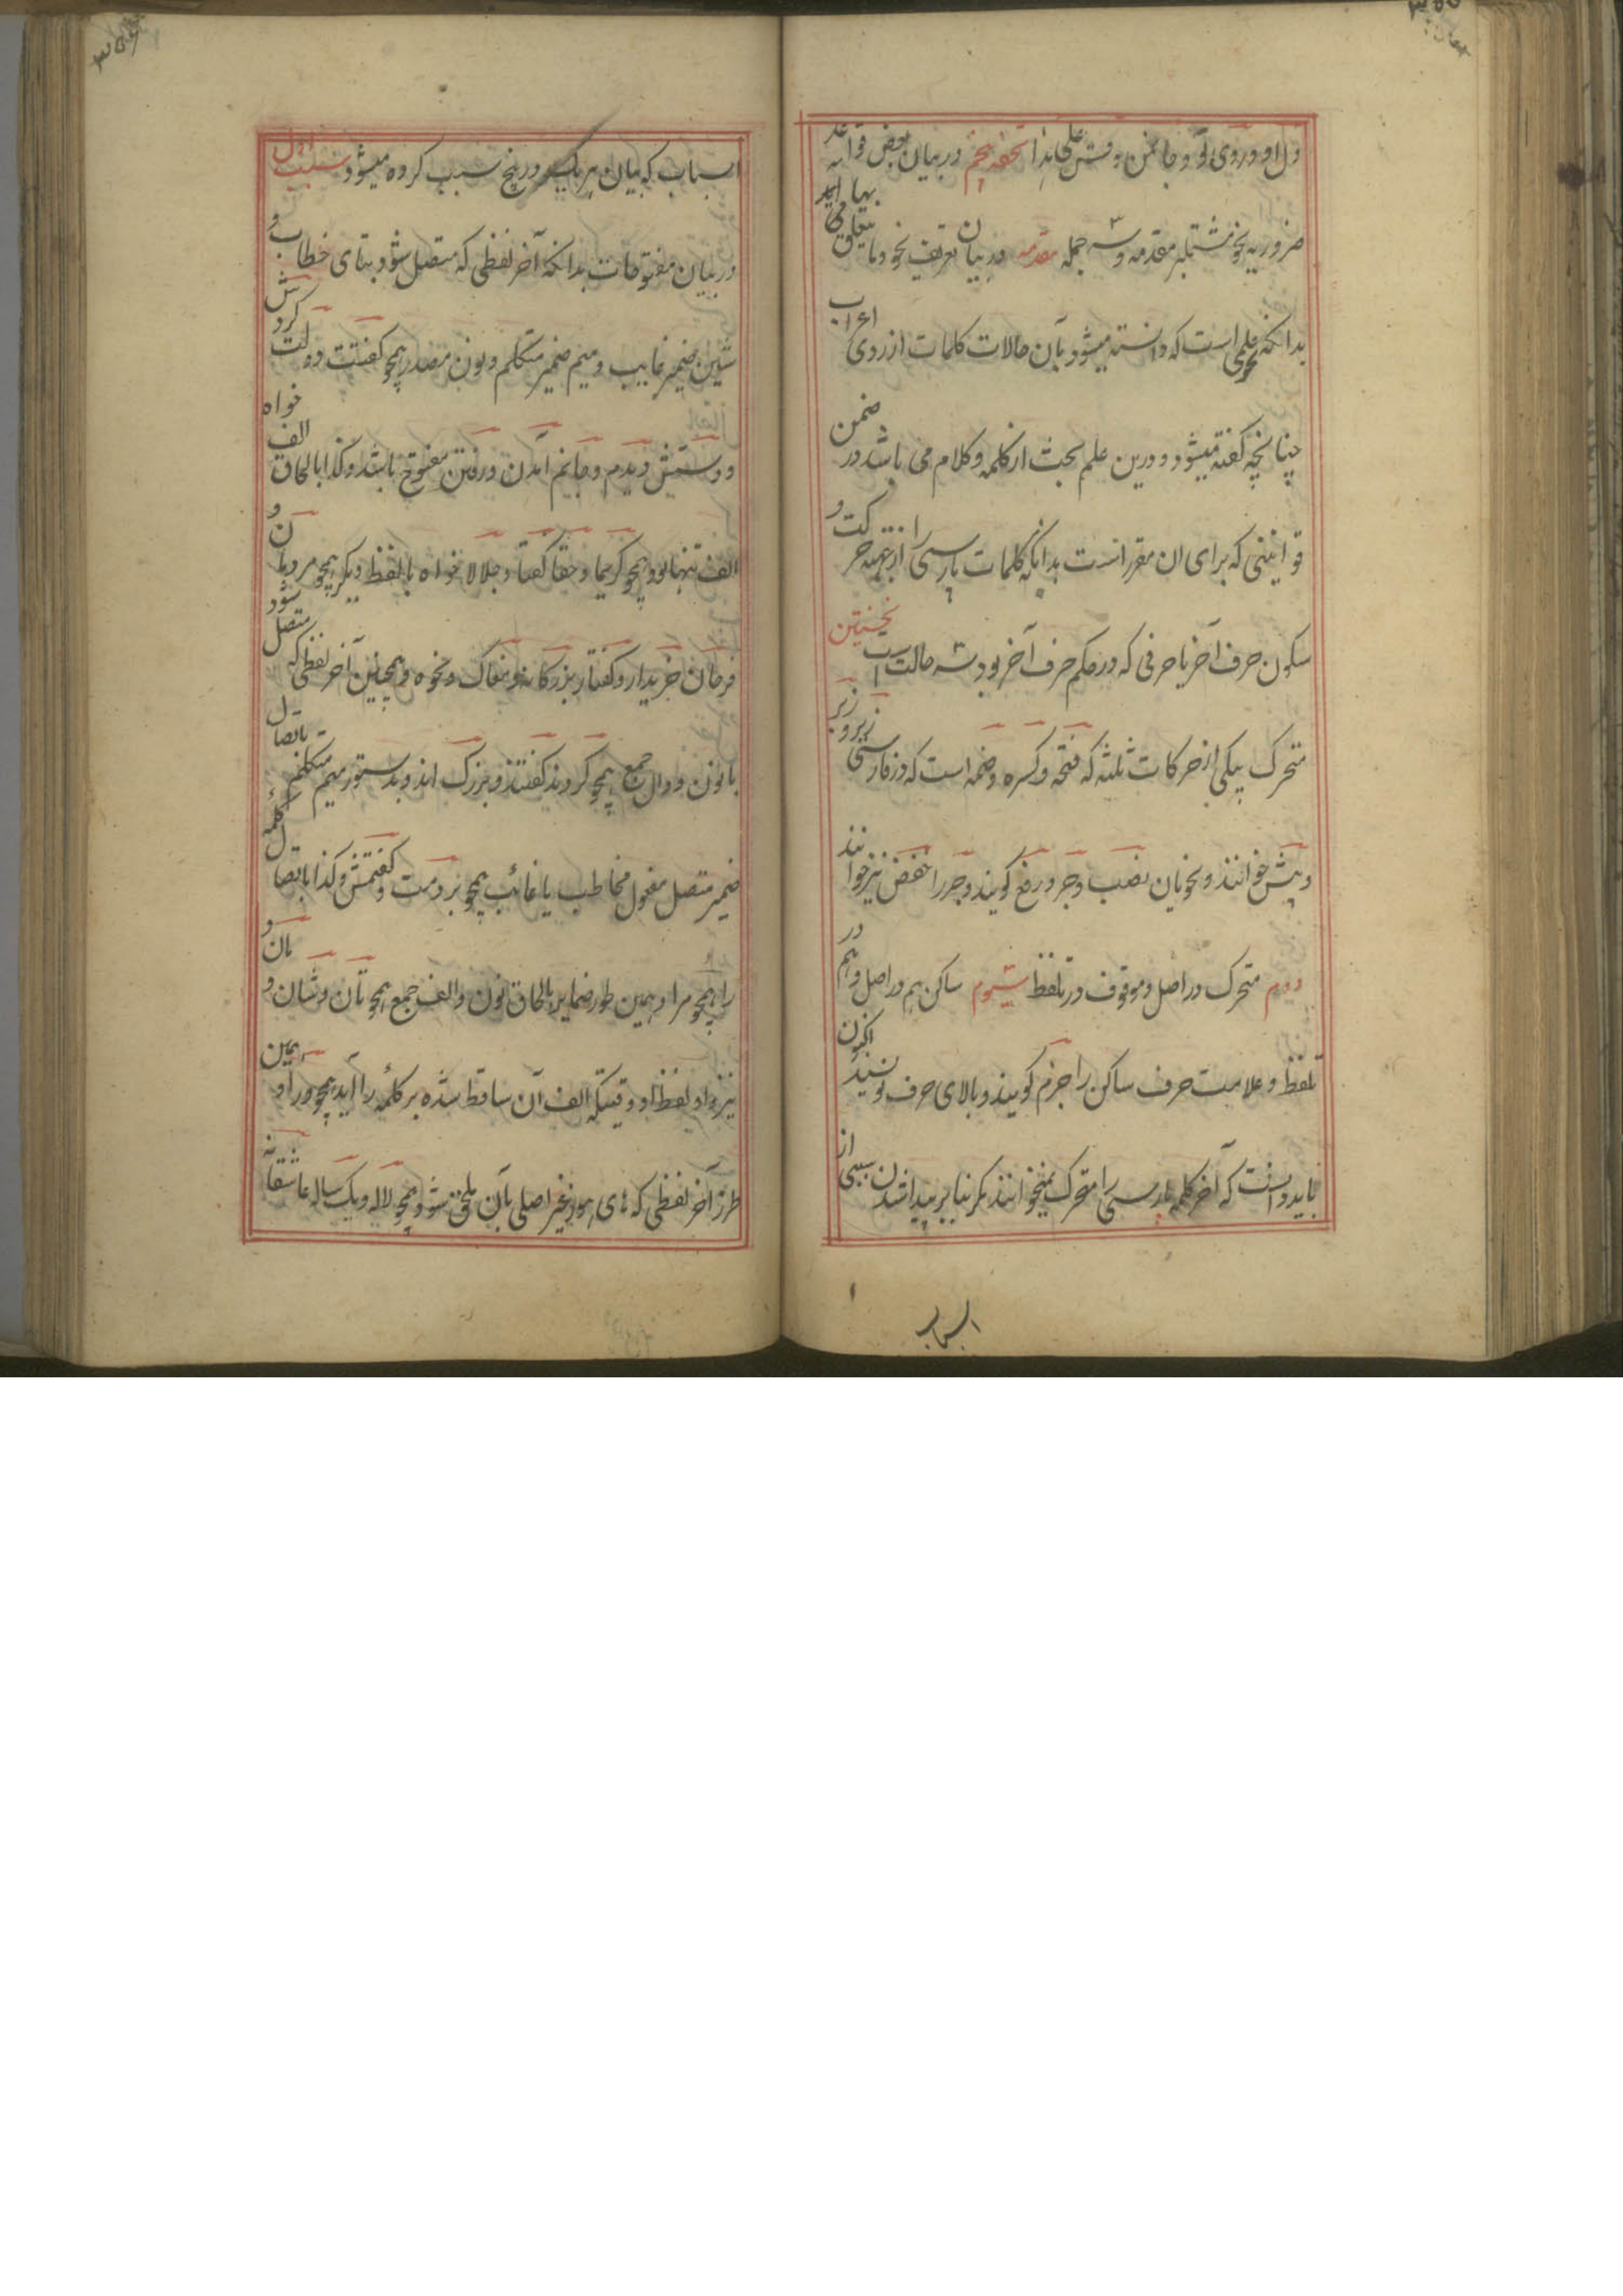 ۳۵۵
دل او و روی تو و جان من و قس علی هذا تحفه پنجم در بیان بعض قواعد
ضروریه نحو مشتمل بر مقدمه و سه جمله مقدمه در بیان تعریف نحو و ما یتعلق بها
بدانکه نحو علمی است که دانسته میشود بآن حالات کلمات از روی اعراب
چنانچه گفته میشود و درین علم بحث از کلمه و کلام می باشد در ضمن
قوانینی که برای آن مقرر است بدانکه کلمات پارسی را از جهت حرکت و
سکون حرف آخر یا حرفی که در حکم حرف آخر بود سه حالت است نخستین
متحرک بیکی از حرکات ثلثه که فتحه و کسره و ضمه است که در فارسی زبر و زیر
و پیش خوانند و نحویان نصب و جر و رفع گویند و جر را خفض نیز خوانند
دویم متحرک در اصل و موقوف در تلفظ سیوم ساکن هم در اصل و هم در
تلفظ و علامت حرف ساکن را جزم گویند و بالای حرف نویسند اکنون
باید دانست که آخر کلمه پارسی را متحرک نمیخوانند مگر بنا بر پیدا شدن سببی از
اسباب
۳۵۶
اسباب که بیان هر یک در پنج سبب کرده میشود سبب اول
در بیان مفتوحات بدانکه آخر لفظی که متصل شود بتای خطاب و
شین ضمیر غایب و میم ضمیر متکلم و نون مصدر همچو گفتت دولت کردش
و دستش و دیدم و جانم آمدن و رفتن مفتوح باشد و کذا بالحاق الف خواه
الف تنها بود همچو کریما و حقا گفتا و جلالا خواه با لفظ دیگر همچو مردان و
فرمان خریدار و گفتار بزرگانه و مغاک و نحوه و همچنین آخر لفظی که متصل شود
با نون و دال جمع همچو کردند گفتند و بزرگ اند و بدستور میم متکلم باتصال
ضمیر متصل مفعول مخاطب یا غائب همچو بردمت و گفتمش و کذا باتصال کلمهٔ
را همچو مرا و همین طور ضمایر بالحاق نون و الف جمع همچو تان و شان و مان و
نیز واو لفظ او وقتیکه الف آن ساقط شده بر کلمهٔ را آید همچو ورا و همین
طرز آخر لفظی که های هوز غیر اصلی بآن ملحق شود همچو لاله و یک ساله عاشقانه